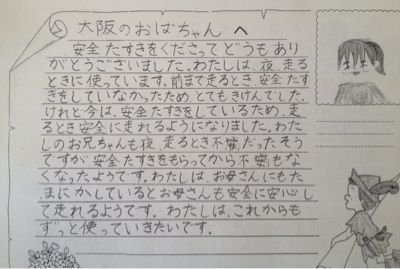 大阪のおばちゃん へ
安全たすきをくださってどうもあり
がとうございました。わたしは、夜、走る
ときに使っています。前まで走るとき、安全たす
きをしていなかったため、とてもきけんでした。
けれと今は、安全たすきをしているため、走
るとき安全に走れるようになりました。わた
しのお兄ちゃんも夜、走るとき不安だったそう
ですが安全たすきをもらってから不安もな
くなったようです。わたしは、お母さんにもた
まにかしているとお母さんも安全に安心し
て走れるようてす。わたしは、これからも
ずっと使っていきたいです。